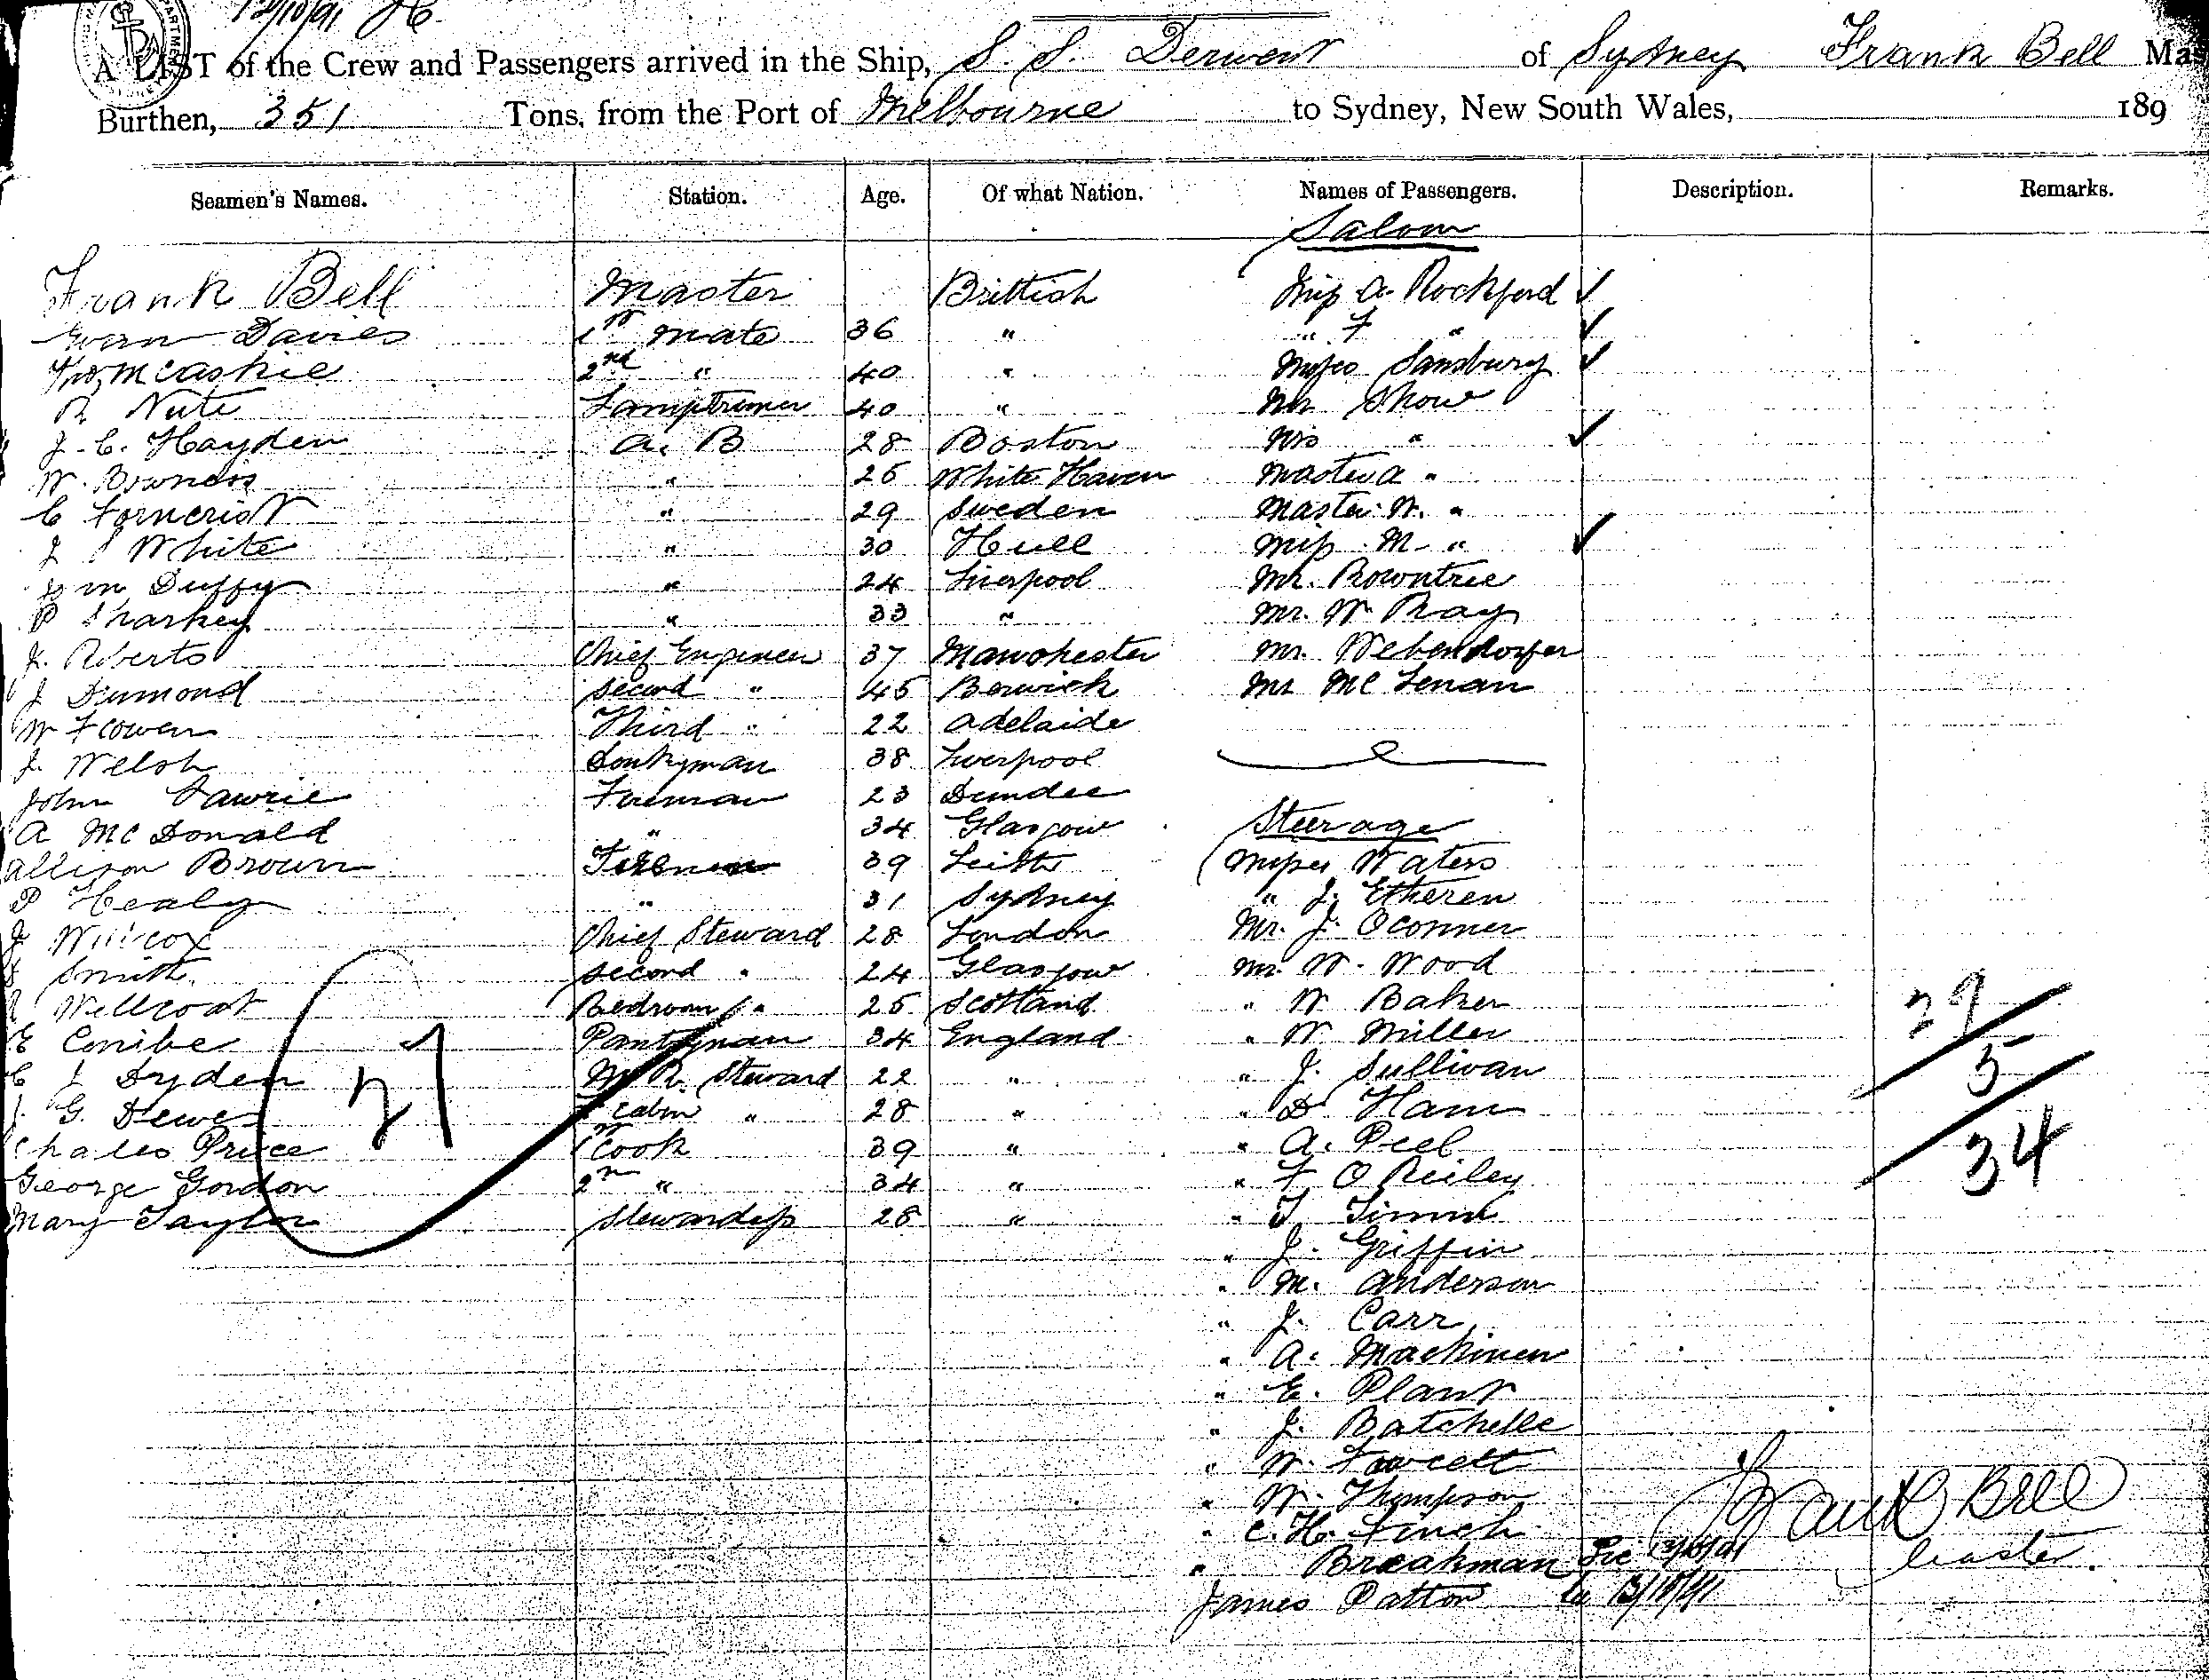 12/10/91
A LIST of the Crew and Passengers arrived in the Ship, S. S. Derwent of Sydney Frank Bell Mas
Burthen, 351 Tons, from the Port of Melbourne to Sydney, New South Wales, 189
Seamen's Names. Station. Age. Of what Nation. Names of Passengers. Description. Remarks.
Saloon
Frank Bell Master Brittish Miss A. Rockford ✓
Evan Davies 1st Mate 36 " " F " ✓
McCaskie 2nd " 40 " Misses Sansbury ✓
R Nute Lamptrimer 40 " Mr Show
J. C. Hayden A. B 28 Boston Mrs " ✓
W. " 26 White Haven Master A "
C Forncrist " 29 Sweden Master W. "
J White " 30 Hull Miss M. " ✓
Wm Duffy " 24 Liverpool Mr. Rowntree
P Sharkey " 33 " Mr. W. Ray
J. Roberts Chief Engineer 37 Manchester Mr. Webendorfer
J Dumond Second " 45 Berwick Mr Mc Lenan
W F Cowen Third " 22 Adelaide
J. Welsh Donkyman 38 Liverpool
John Lawrie Fireman 23 Dundee
Steerage
A McDonald " 34 Glasgow
Allison Brown Fireman 39 Leith Misses Waters
P Healy " 31 Sydney " J. Etheren
J Willcox Chief Steward 28 London Mr. J. Oconner
Smith Second " 24 Glasgow Mr. W. Wood
Wellcoat Bedroom " 25 Scotland " W Baker
29
E Conibe Pantryman 34 England " W Miller
5
C J Dyden M. R. Steward 22 " " J. Sullivan
27
J. G. Dewes F Cabin " 28 " " D Ham
34
Chales Price 1st Cook 39 " " A. Peel
George Gordon 2nd " 34 " " F O Reiley
Mary Taylor Stewardess 28 " " T Timms
" J. Griffin
" M. Anderson
" J. Carr
" A. Mackinen
" E. Plant
" J. Batchelle
" W. Fawcett
" W. Thompson
" C. H. Finch
Frank Bell
" Breakman 13/10/91 Master.
James Patton 13/10/91